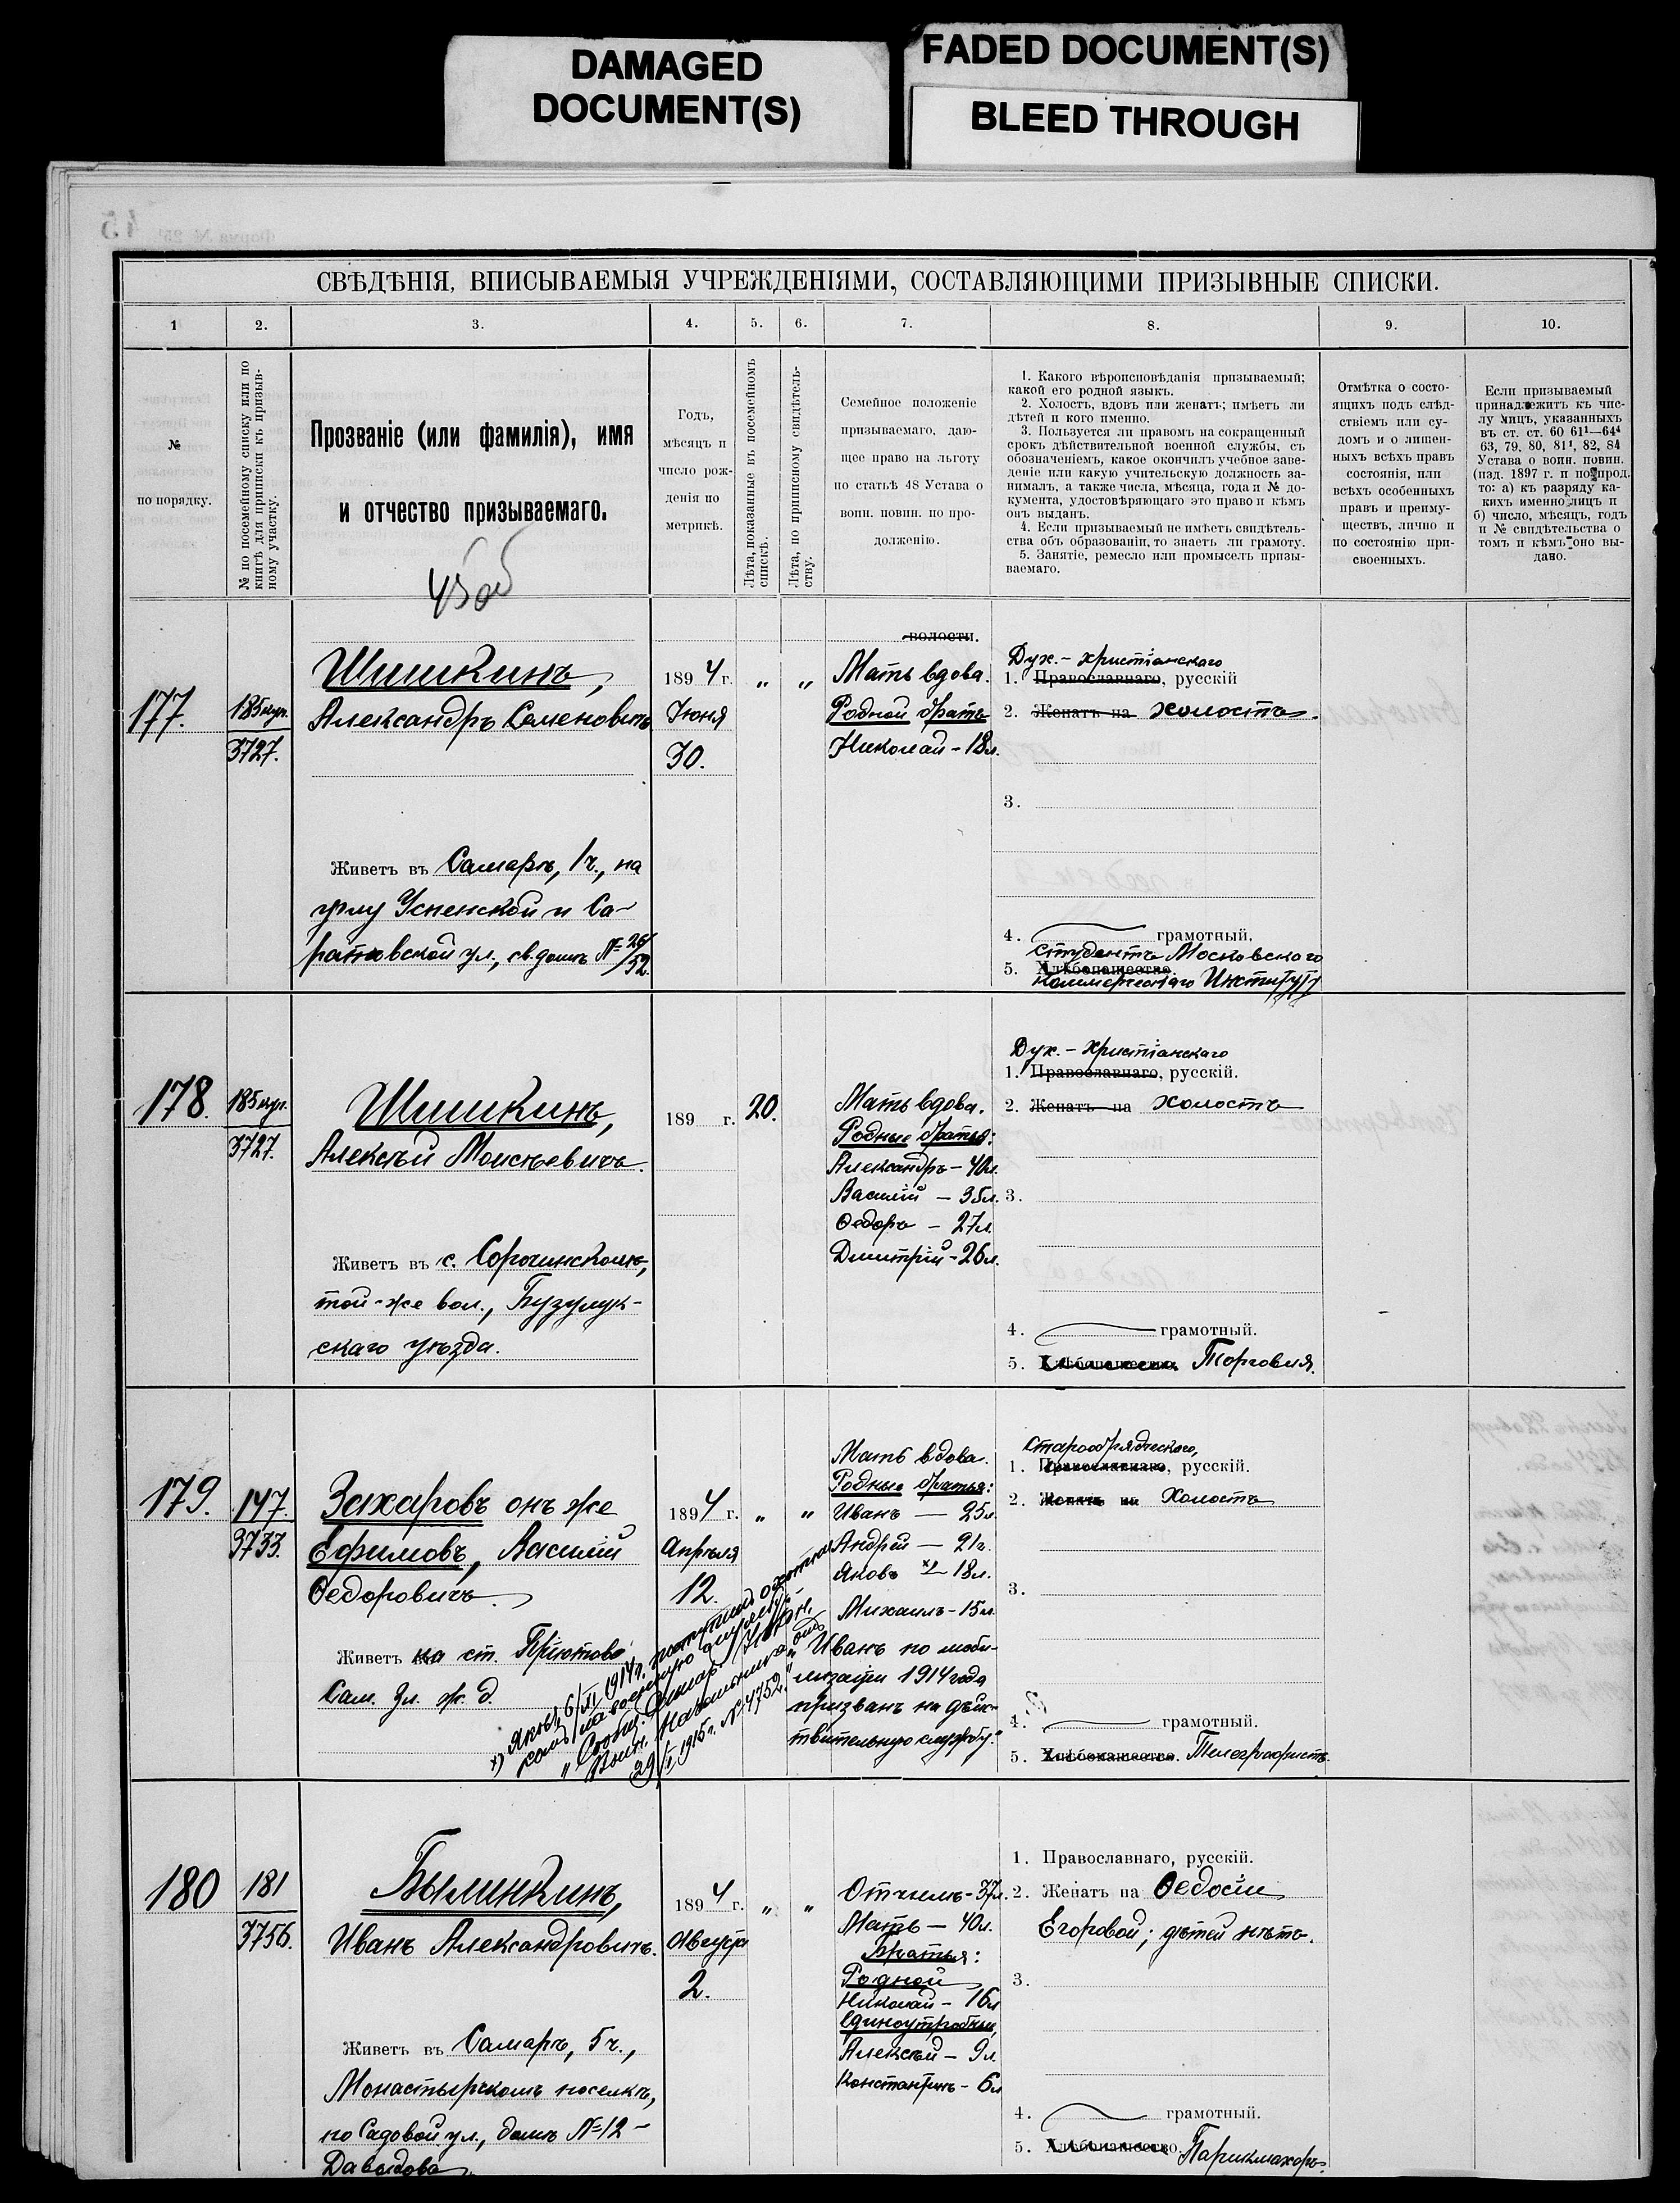 DAMAGED
DOCUMENT(S)
FADED DOCUMENT(S)
BLEED THROUGH
СВѢДѢНІЯ, ВПИСЫВАЕМЫЯ УЧРЕЖДЕНІЯМИ, СОСТАВЛЯЮЩИМИ ПРИЗЫВНЫЕ СПИСКИ.
1 2. 3. 4. 5. 6. 7. 8. 9. 10.
№
по порядку.
№ по посемейному списку или по
книгѣ для приписки къ призыв-
ному участку.
Прозваніе (или фамилія), имя
и отчество призываемаго.
45об
Годъ,
мѣсяцъ и
число рож-
денія по
метрикѣ.
Лѣта, показанные въ посемейномъ
спискѣ.
Лѣта, по приписному свидѣтель-
ству.
Семейное положеніе
призываемаго, даю-
щее право на льготу
по статьѣ 48 Устава о
воин. повин. по про-
долженію.
1. Какого вѣроисповѣданія призываемый;
какой его родной языкъ.
2. Холостъ, вдовъ или женатъ; имѣетъ ли
дѣтей и кого именно.
3. Пользуется ли правомъ на сокращенный
срокъ дѣйствительной военной службы, съ
обозначеніемъ, какое окончилъ учебное заве-
деніе или какую учительскую должность за-
нималъ, а также числа, мѣсяца, года и № до-
кумента, удостовѣряющаго это право и кѣмъ
онъ выданъ.
4. Если призываемый не имѣетъ свидѣтель-
ства объ образованіи, то знаетъ ли грамоту.
5. Занятіе, ремесло или промыселъ призы-
ваемаго.
Отмѣтка о состо-
ящихъ подъ слѣд-
ствіемъ или су-
домъ и о лишен-
ныхъ всѣхъ правъ
состоянія, или
всѣхъ особенныхъ
правъ и преиму-
ществъ, лично и
по состоянію при-
своенныхъ.
Если призываемый
принадлежитъ къ чис-
лу лицъ, указанныхъ
въ ст. ст. 60 61¹—64⁴
63, 79, 80, 81¹, 82, 84
Устава о воин. повин.
(изд. 1897 г. и по прод.
то: а) къ разряду ка-
кихъ именно лицъ и
б) число, мѣсяцъ, годъ
и № свидѣтельства о
томъ и кѣмъ оно вы-
дано.
177.
185 кup.
3727.
Шишкинъ,
Александръ Семеновичъ
Живетъ въ Самарѣ, 1ч., на
углу Успенской и Са-
ратовской ул., св. домъ № 26/52.
1894 г.
Іюня
30.
„ „
волости.
Мать вдова.
Родной братъ
Николай - 18л.
Дух.- христіанскаго
1. Православнаго, русскій
2. Женатъ на холостъ.
3.
4. грамотный.
студентъ Московскаго
5. Хлѣбопашество.
Коммерческаго Института
178.
3727.
Шишкинъ,
Алексѣй Моисѣевичъ.
Живетъ въ с. Сорочинскомъ,
той-же вол., Бузулук-
скаго уѣзда.
189 г.
20.
Мать вдова.
Родные братья:
Александръ - 40л.
Василій - 35л.
Ѳедоръ - 27л.
Дмитрій - 26л.
Дух.- христіанскаго
1. Православнаго, русскій.
2. Женатъ на холостъ
3.
4. грамотный.
5. Хлѣбопашество. Торговля.
179.
147.
3733.
Захаровъ онъ же
Ефимовъ, Василій
Ѳедоровичъ
Живетъ на ст. Пріютово
Сам. Зл. ж. д.
х) Яковъ 6/XI 1914 г. поступилъ охотни-
комъ на военную службу.
„Сообщ. Самар. Уѣздн.
Воин. Начальника отъ
29/I 1915 г. № 4752."
1894 г.
Апрѣля
12.
„ „
Мать вдова.
Родные братья:
Иванъ — 25л.
Андрей — 21г.
Яковъ х) 18л.
Михаилъ - 15л.
„Иванъ по моби-
лизаціи 1914 года
призванъ на дѣйс-
твительную службу."
старообрядческаго,
1. Православнаго, русскій.
2. Женатъ на Холостъ
3.
4. грамотный.
5. Хлѣбопашество. Телеграфистъ.
180
181
3756.
Былинкинъ,
Иванъ Александровичъ.
Живетъ въ Самарѣ, 5ч.,
Монастырскомъ поселкѣ,
по Садовой ул., домъ №12 -
Давыдова.
1894 г.
Августа
2.
„ „
Отчимъ - 37л.
Мать — 40л.
Братья:
Родной
Николай - 16л
Единоутробные,
Алексѣй - 9л
Константинъ - 6л
1. Православнаго, русскій.
2. Женатъ на Ѳедосіи
Егоровой; дѣтей нѣтъ.
3.
4. грамотный.
5. Хлѣбопашество. Парикмахеръ.